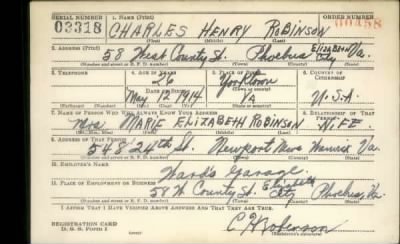 SERIAL NUMBER 1. NAME (Print) ORDER NUMBER
03318 CHARLES HENRY ROBINSON
(First) (Middle) (Last)
2. ADDRESS (Print)
58 West County St. Phoebus, Elizabeth City Va.
(Number and street or R. F. D. number) (Town) (County) (State)
3. TELEPHONE 4. AGE IN YEARS 5. PLACE OF BIRTH 6. COUNTRY OF CITIZENSHIP
26 Yorktown
DATE OF BIRTH (Town or county)
May 1914 VA U.S.A.
(Exchange) (Number) (Mo.) (Day) (Yr.) (State or country)
7. NAME OF PERSON WHO WILL ALWAYS KNOW YOUR ADDRESS 8. RELATIONSHIP OF THAT PERSON
Mrs. MARIE ELIZABETH ROBINSON WIFE
(Mr., Mrs., Miss) (First) (Middle) (Last)
9. ADDRESS OF THAT PERSON
548 24th St. Newport News Warwick Va.
(Number and street or R. F. D. number) (Town) (County) (State)
10. EMPLOYER'S NAME
Ward's Garage
11. PLACE OF EMPLOYMENT OR BUSINESS
58 W County St. Elizabeth City Phoebus, Va.
(Number and street or R. F. D. number) (Town) (County) (State)
I AFFIRM THAT I HAVE VERIFIED ABOVE ANSWERS AND THAT THEY ARE TRUE.
REGISTRATION CARD
D. S. S. Form 1 C H Robinson
(Registrant's signature)